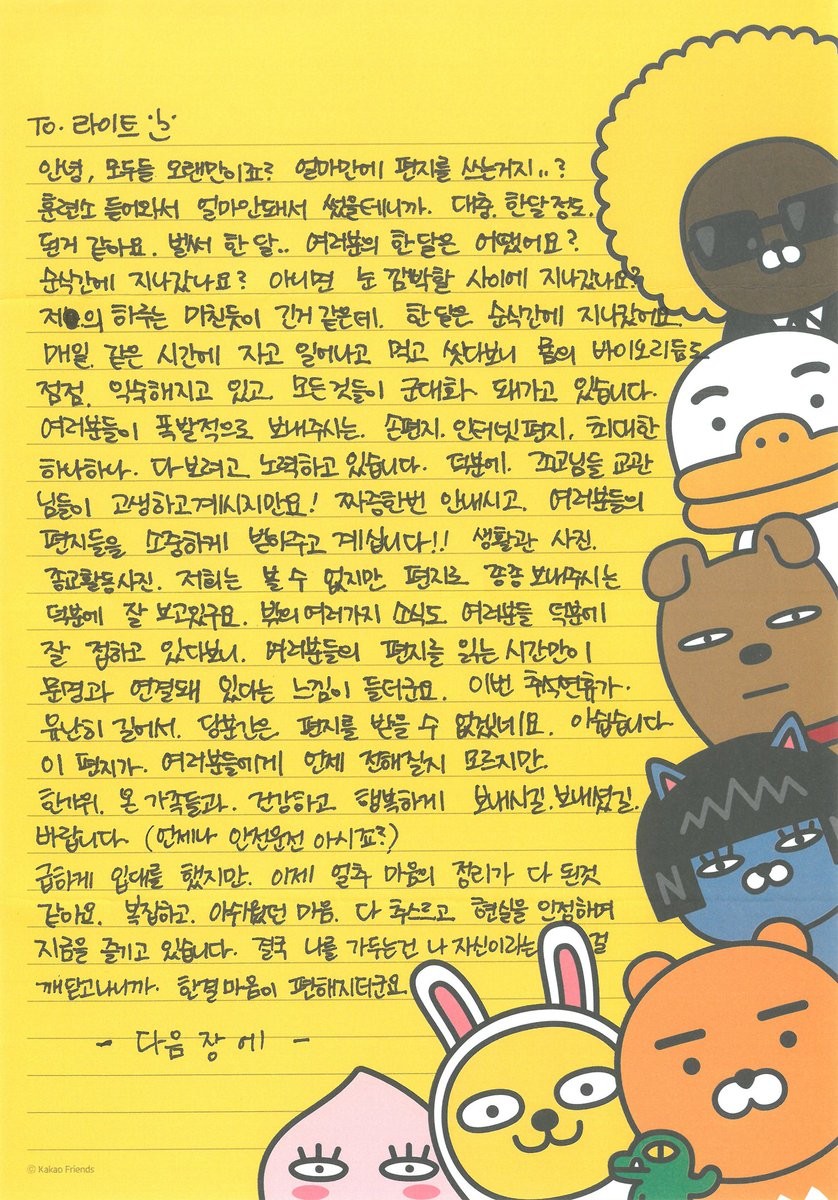 To. 라이트
안녕, 모두들 오랜만이죠? 얼마만에 편지를 쓰는거지..?
훈련소 들어와서 얼마안돼서 썼을테니까. 대충. 한달정도.
된거 같아요. 벌써 한 달.. 여러분의 한달은 어땠어요?
순식간에 지나갔나요? 아니면 눈 깜박할 사이에 지나갔나요?
저의 하루는 미친듯이 긴거 같은데. 한달은 순식간에 지나갔어요.
매일. 같은 시간에 자고 일어나고 먹고 씻다보니 몸의 바이오리듬도
점점. 익숙해지고 있고. 모든것들이 군대화 돼가고 있습니다.
여러분들이 폭발적으로 보내주시는. 손편지. 인터넷편지, 최대한
하나하나. 다보려고 노력하고 있습니다. 덕분에. 조교님들 교관
님들이 고생하고계시지만요! 짜증한번 안내시고. 여러분들의
편지들을 소중하게 받아주고 계십니다!! 생활관 사진.
종교활동사진. 저희는 볼 수 없지만 편지로 종종 보내주시는
덕분에 잘 보고있구요. 밖의 여러가지 소식도. 여러분들 덕분에
잘 접하고 있다보니. 여러분들의 편지를 읽는 시간만이
문명과 연결돼 있다는 느낌이 들더군요. 이번 추석연휴가.
유난히 길어서. 당분간은 편지를 받을 수 없겠네요. 아쉽습니다
이 편지가. 여러분들에게 언제 전해질지 모르지만.
한가위. 온 가족들과. 건강하고 행복하게 보내시길. 보내셨길.
바랍니다 (언제나 안전운전 아시죠?)
급하게 입대를 했지만. 이제 얼추 마음의 정리가 다 된것
같아요. 복잡하고. 아쉬웠던 마음. 다 추스르고 현실을 인정하며
지금을 즐기고 있습니다. 결국 나를 가두는건 나 자신이라는 걸
깨닫고나니까. 한결 마음이 편해지더군요.
- 다음 장에 -
© Kakao Friends